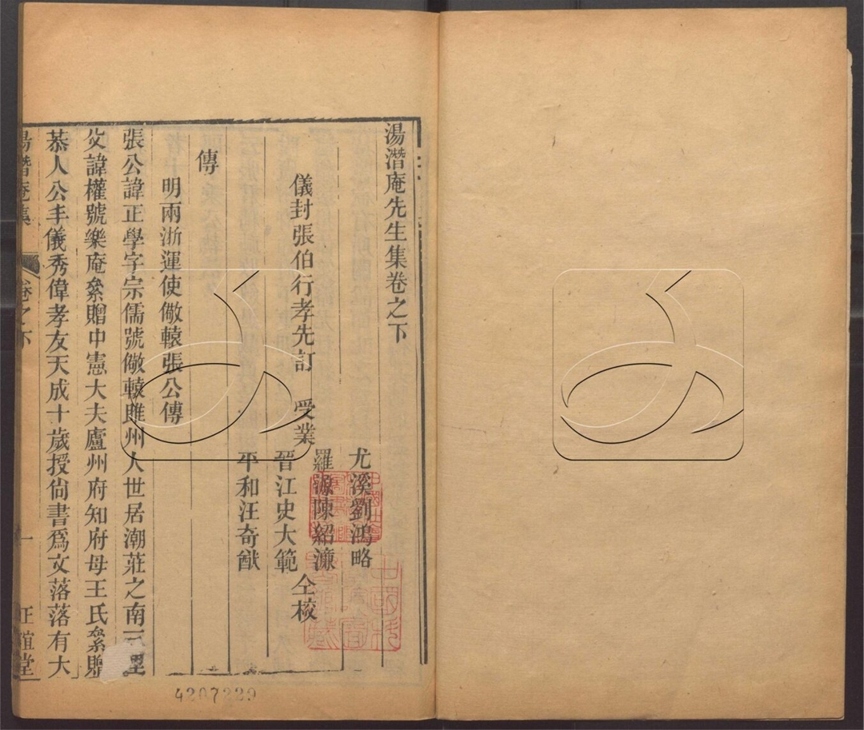 湯潛庵先生集卷之下
尤溪劉鴻略
儀封張伯行孝先訂 受業
羅源陳紹濂
晉江史大範
仝校
平和汪奇猷
傳
明兩浙運使儆轅張公傳
張公諱正學字宗儒號儆轅睢州人世居潮莊之南三里
父諱權號樂庵纍贈中憲大夫廬州府知府母王氏纍贈
恭人公丰儀秀偉孝友天成十歲授尙書爲文落落有大
湯潛庵集 卷之下 一 正誼堂
4207229